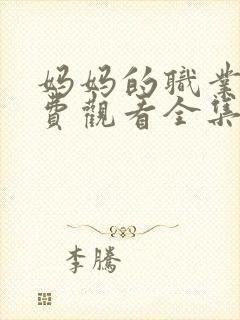 妈妈的職業
費觀看全集
李騰